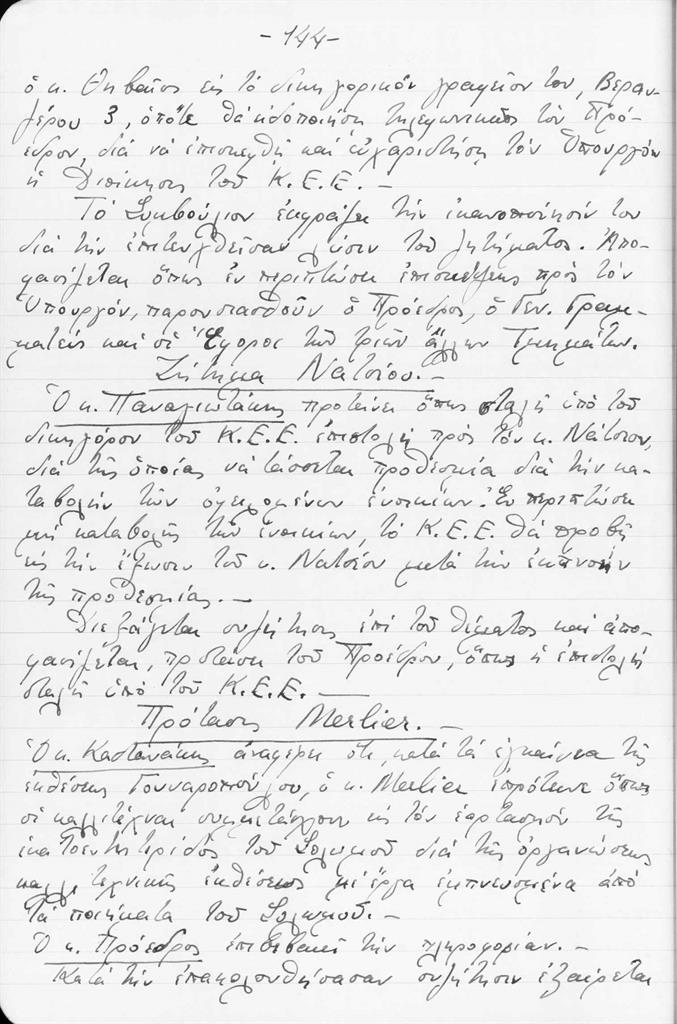 -144-
ὁ κ. Θηβαῖος εἰς τό δικηγορικόν γραφεῖον του, Βεραν-
ζέρου 3, ὁπότε θά εἰδοποιήσῃ τηλεφωνικῶς τόν Πρό-
εδρον, διά νά ἐπισκεφθῇ καί εὐχαριστήσῃ τόν Ὑπουργόν
ἡ Διοίκησις τοῦ Κ.Ε.Ε. -
Τό Συμβούλιον ἐκφράζει τήν ἱκανοποίησίν του
διά τήν ἐπιτευχθεῖσαν λύσιν τοῦ ζητήματος. Ἀπο-
φασίζεται ὅπως ἐν περιπτώσει ἐπισκέψεως πρός τόν
Ὑπουργόν, παρουσιασθοῦν ὁ Πρόεδρος, ὁ Γεν. Γραμ-
ματεύς καί οἱ Ἔφοροι τῶν τριῶν ἄλλων Τμημάτων.
Ζήτημα Νάτσιου. -
Ὁ κ. Παναγιωτάκης προτείνει ὅπως σταλῇ ὑπό τοῦ
δικηγόρου τοῦ Κ.Ε.Ε. ἐπιστολή πρός τόν κ. Νάτσιον,
διά τῆς ὁποίας νά τάσσεται προθεσμία διά τήν κα-
ταβολήν τῶν ὀφειλομένων ἐνοικίων. Ἐν περιπτώσει
μή καταβολῆς τῶν ἐνοικίων, τό Κ.Ε.Ε. θά προβῇ
εἰς τήν ἔξωσιν τοῦ κ. Νατσίου μετά τήν ἐκπνοήν
τῆς προθεσμίας. -
Διεξάγεται συζήτησις ἐπί τοῦ θέματος καί ἀπο-
φασίζεται, προτάσει τοῦ Προέδρου, ὅπως ἡ ἐπιστολή
σταλῇ ὑπό τοῦ Κ.Ε.Ε. -
Πρότασις Merlier. -
Ὁ κ. Καστανάκης ἀναφέρει ὅτι, κατά τά ἐγκαίνια τῆς
ἐκθέσεως Γουναροπούλου, ὁ κ. Merlier ἐπρότεινε ὅπως
οἱ καλλιτέχναι συμμετάσχουν εἰς τόν ἑορτασμόν τῆς
ἑκατονταετηρίδος τοῦ Σολωμοῦ διά τῆς ὀργανώσεως
καλλιτεχνικῆς ἐκθέσεως μέ ἔργα ἐμπνευσμένα ἀπό
τά ποιήματα τοῦ Σολωμοῦ. -
Ὁ κ. Πρόεδρος ἐπιβεβαιεῖ τήν πληροφορίαν. -
Κατά τήν ἐπακολουθήσασαν συζήτησιν ἐξαίρεται